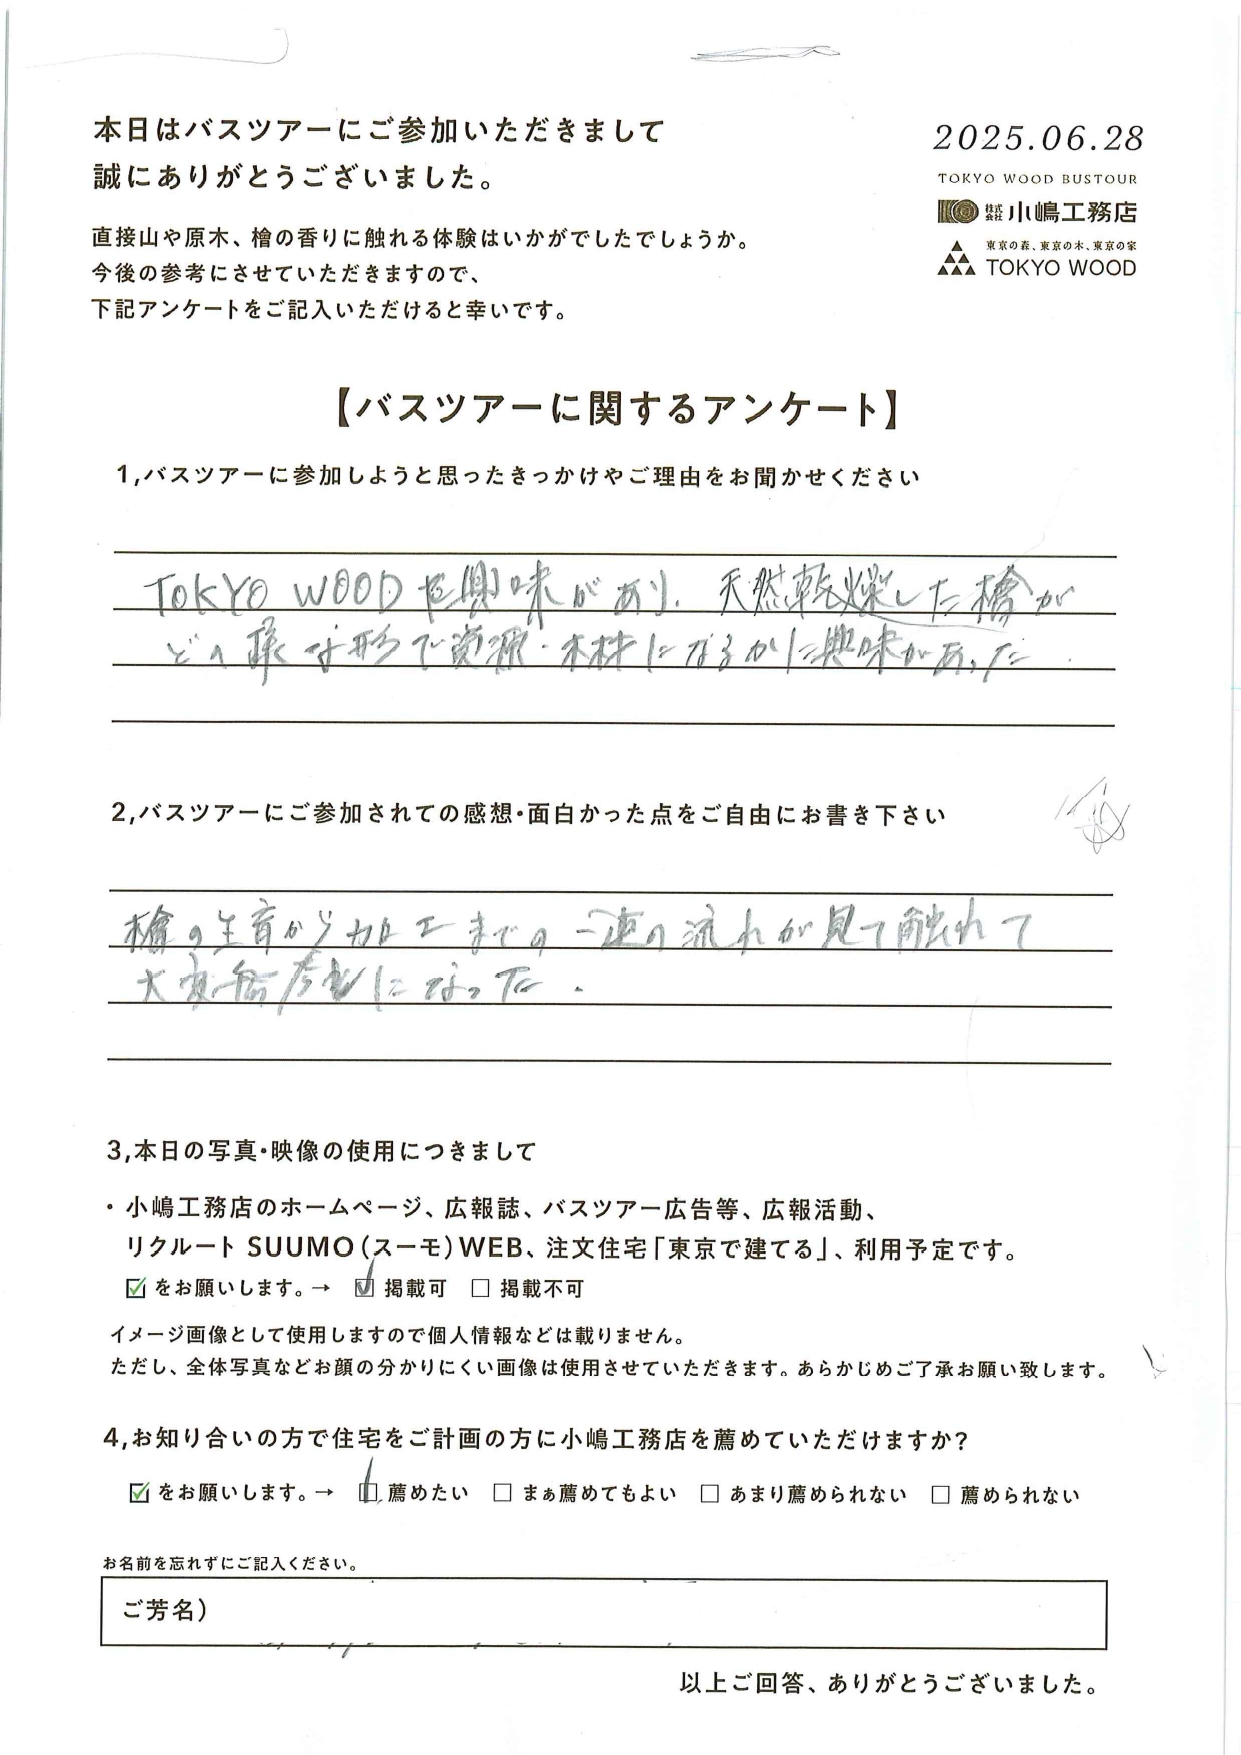 本日はバスツアーにご参加いただきまして
誠にありがとうございました。
直接山や原木、檜の香りに触れる体験はいかがでしたでしょうか。
今後の参考にさせていただきますので、
下記アンケートをご記入いただけると幸いです。
2025.06.28
TOKYO WOOD BUSTOUR
株式会社 小嶋工務店
東京の森、東京の木、東京の家
TOKYO WOOD
【バスツアーに関するアンケート】
1,バスツアーに参加しようと思ったきっかけやご理由をお聞かせください
TOKYO WOOD 興味があり、天然乾燥した檜が
どの様な形で資源・木材になるかに興味があった
2,バスツアーにご参加されての感想・面白かった点をご自由にお書き下さい
檜の生育から加工までの一連の流れが見て触れて
大変参考になった.
3,本日の写真・映像の使用につきまして
・小嶋工務店のホームページ、広報誌、バスツアー広告等、広報活動、
リクルート SUUMO(スーモ)WEB、注文住宅「東京で建てる」、利用予定です。
☑ をお願いします。→ ☑ 掲載可 □ 掲載不可
イメージ画像として使用しますので個人情報などは載りません。
ただし、全体写真などお顔の分かりにくい画像は使用させていただきます。あらかじめご了承お願い致します。
4,お知り合いの方で住宅をご計画の方に小嶋工務店を薦めていただけますか?
☑ をお願いします。→ ☑ 薦めたい □ まぁ薦めてもよい □ あまり薦められない □ 薦められない
お名前を忘れずにご記入ください。
ご芳名)
以上ご回答、ありがとうございました。